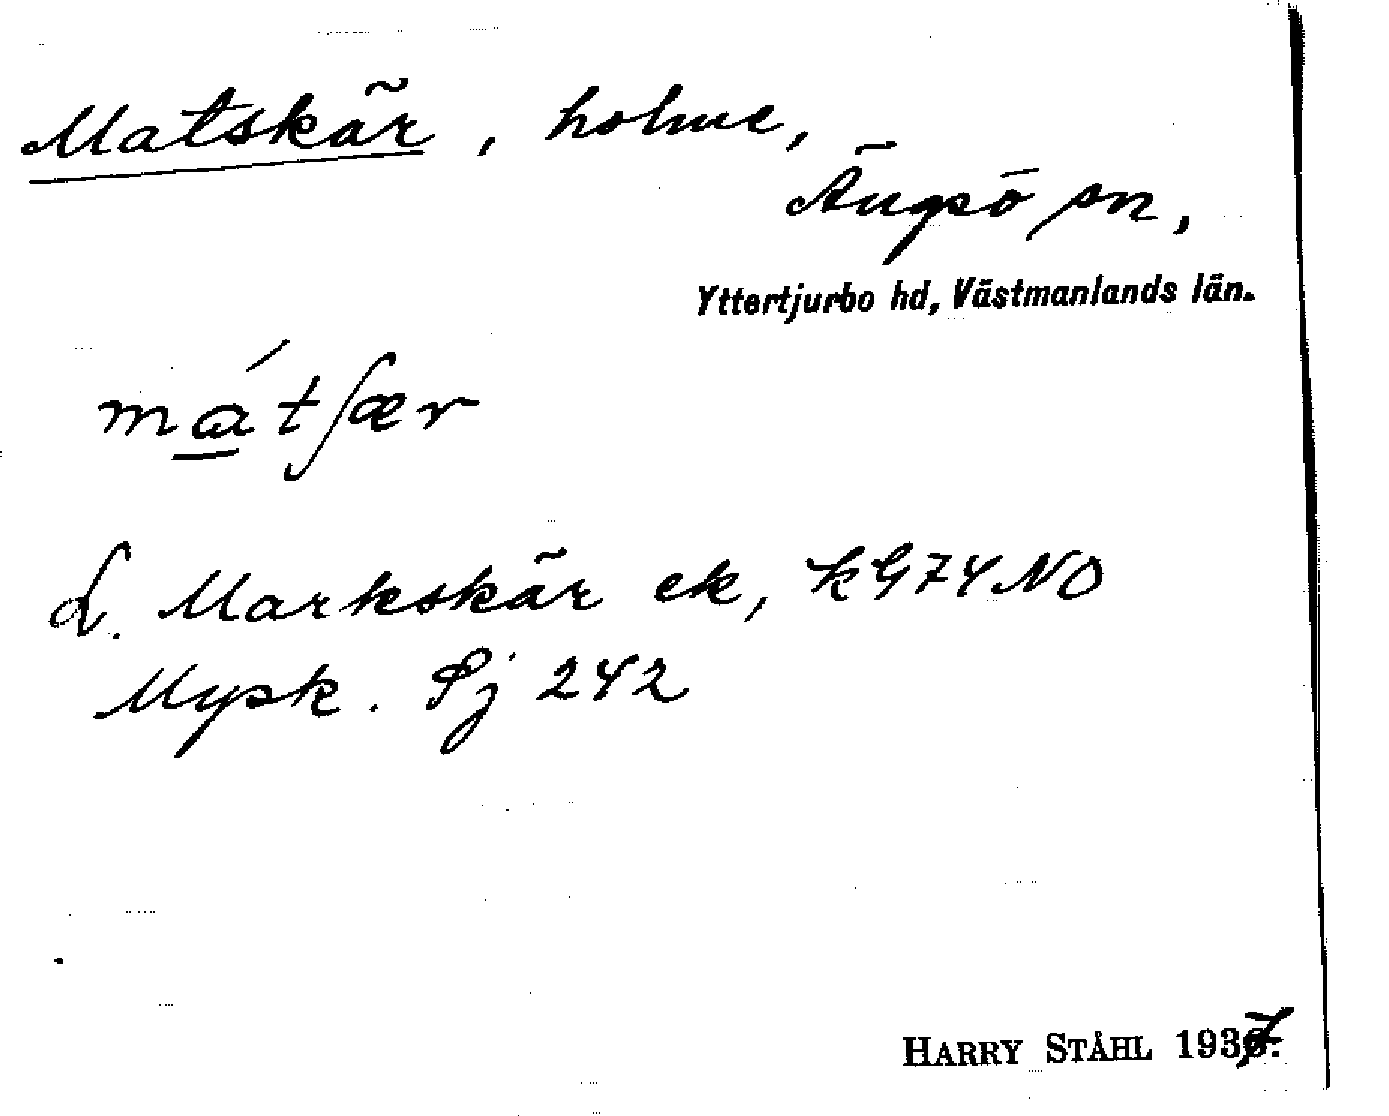 Matskär, holme,
Ängsö sn,
Yttertjurbo hd, Västmanlands län.
mátʃær
L. Markskär ek, kG74NO
Mysk. Sj 242
HARRY STÅHL 1937.